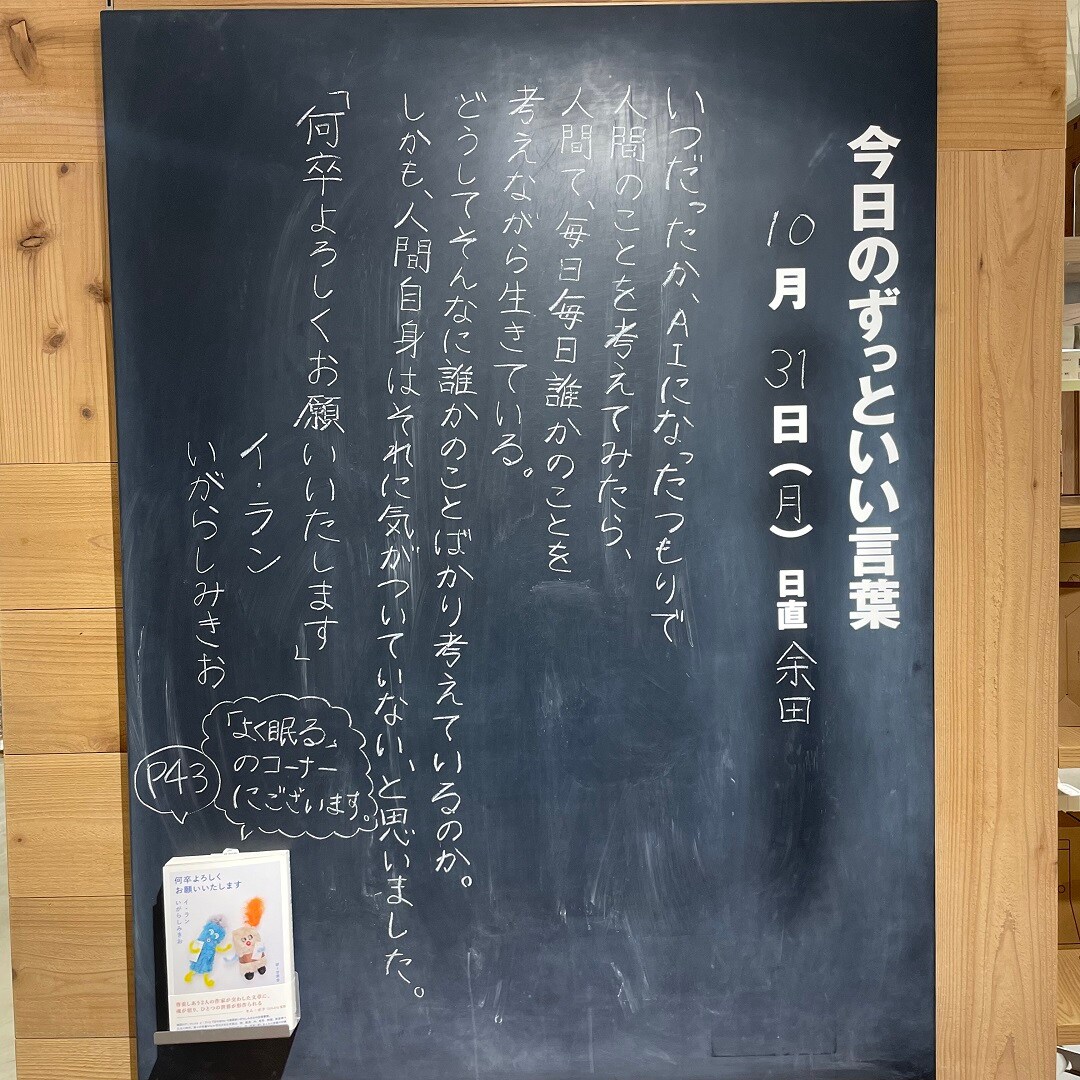 今日のずっといい言葉
10月31日(月) 日直 余田
いつだったか、AIになったつもりで
人間のことを考えてみたら、
人間て、毎日毎日誰かのことを
考えながら生きている。
どうしてそんなに誰かのことばかり考えているのか。
しかも、人間自身はそれに気がついていない、と思いました。
「何卒よろしくお願いいたします」
イ・ラン
いがらしみきお
「よく眠る」
のコーナー
にございます。
P43
何卒よろしく
お願いいたします
イ・ラン
いがらしみきお